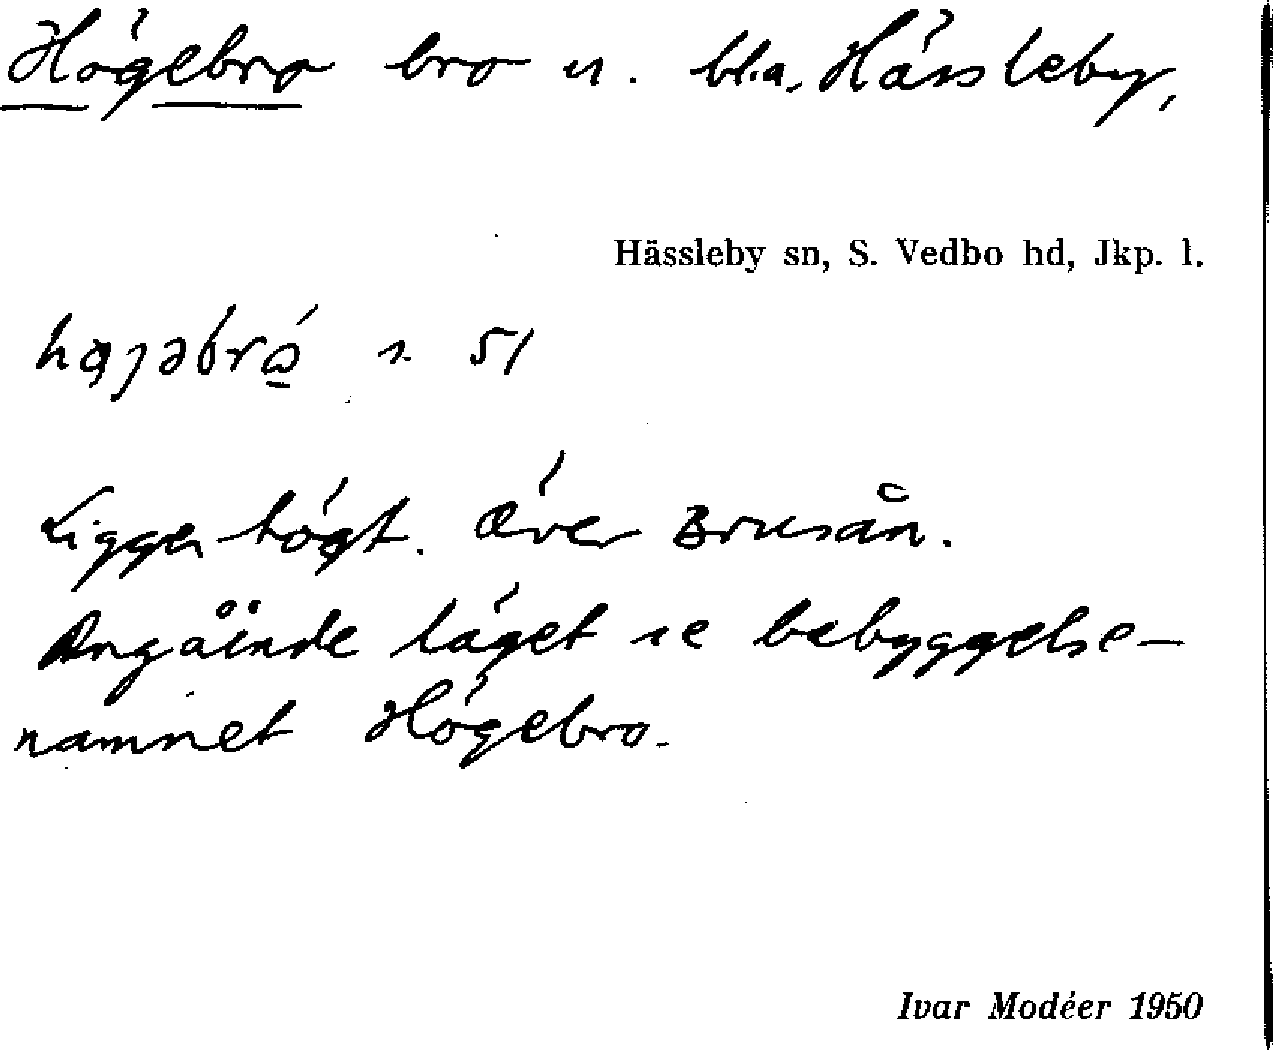 Högebro bro u. bl.a. Hässleby,
Hässleby sn, S. Vedbo hd, Jkp. l.
51
Ligger högt. Över Brusån.
Angående läget se bebyggelse-
namnet Högebro.
Ivar Modéer 1950